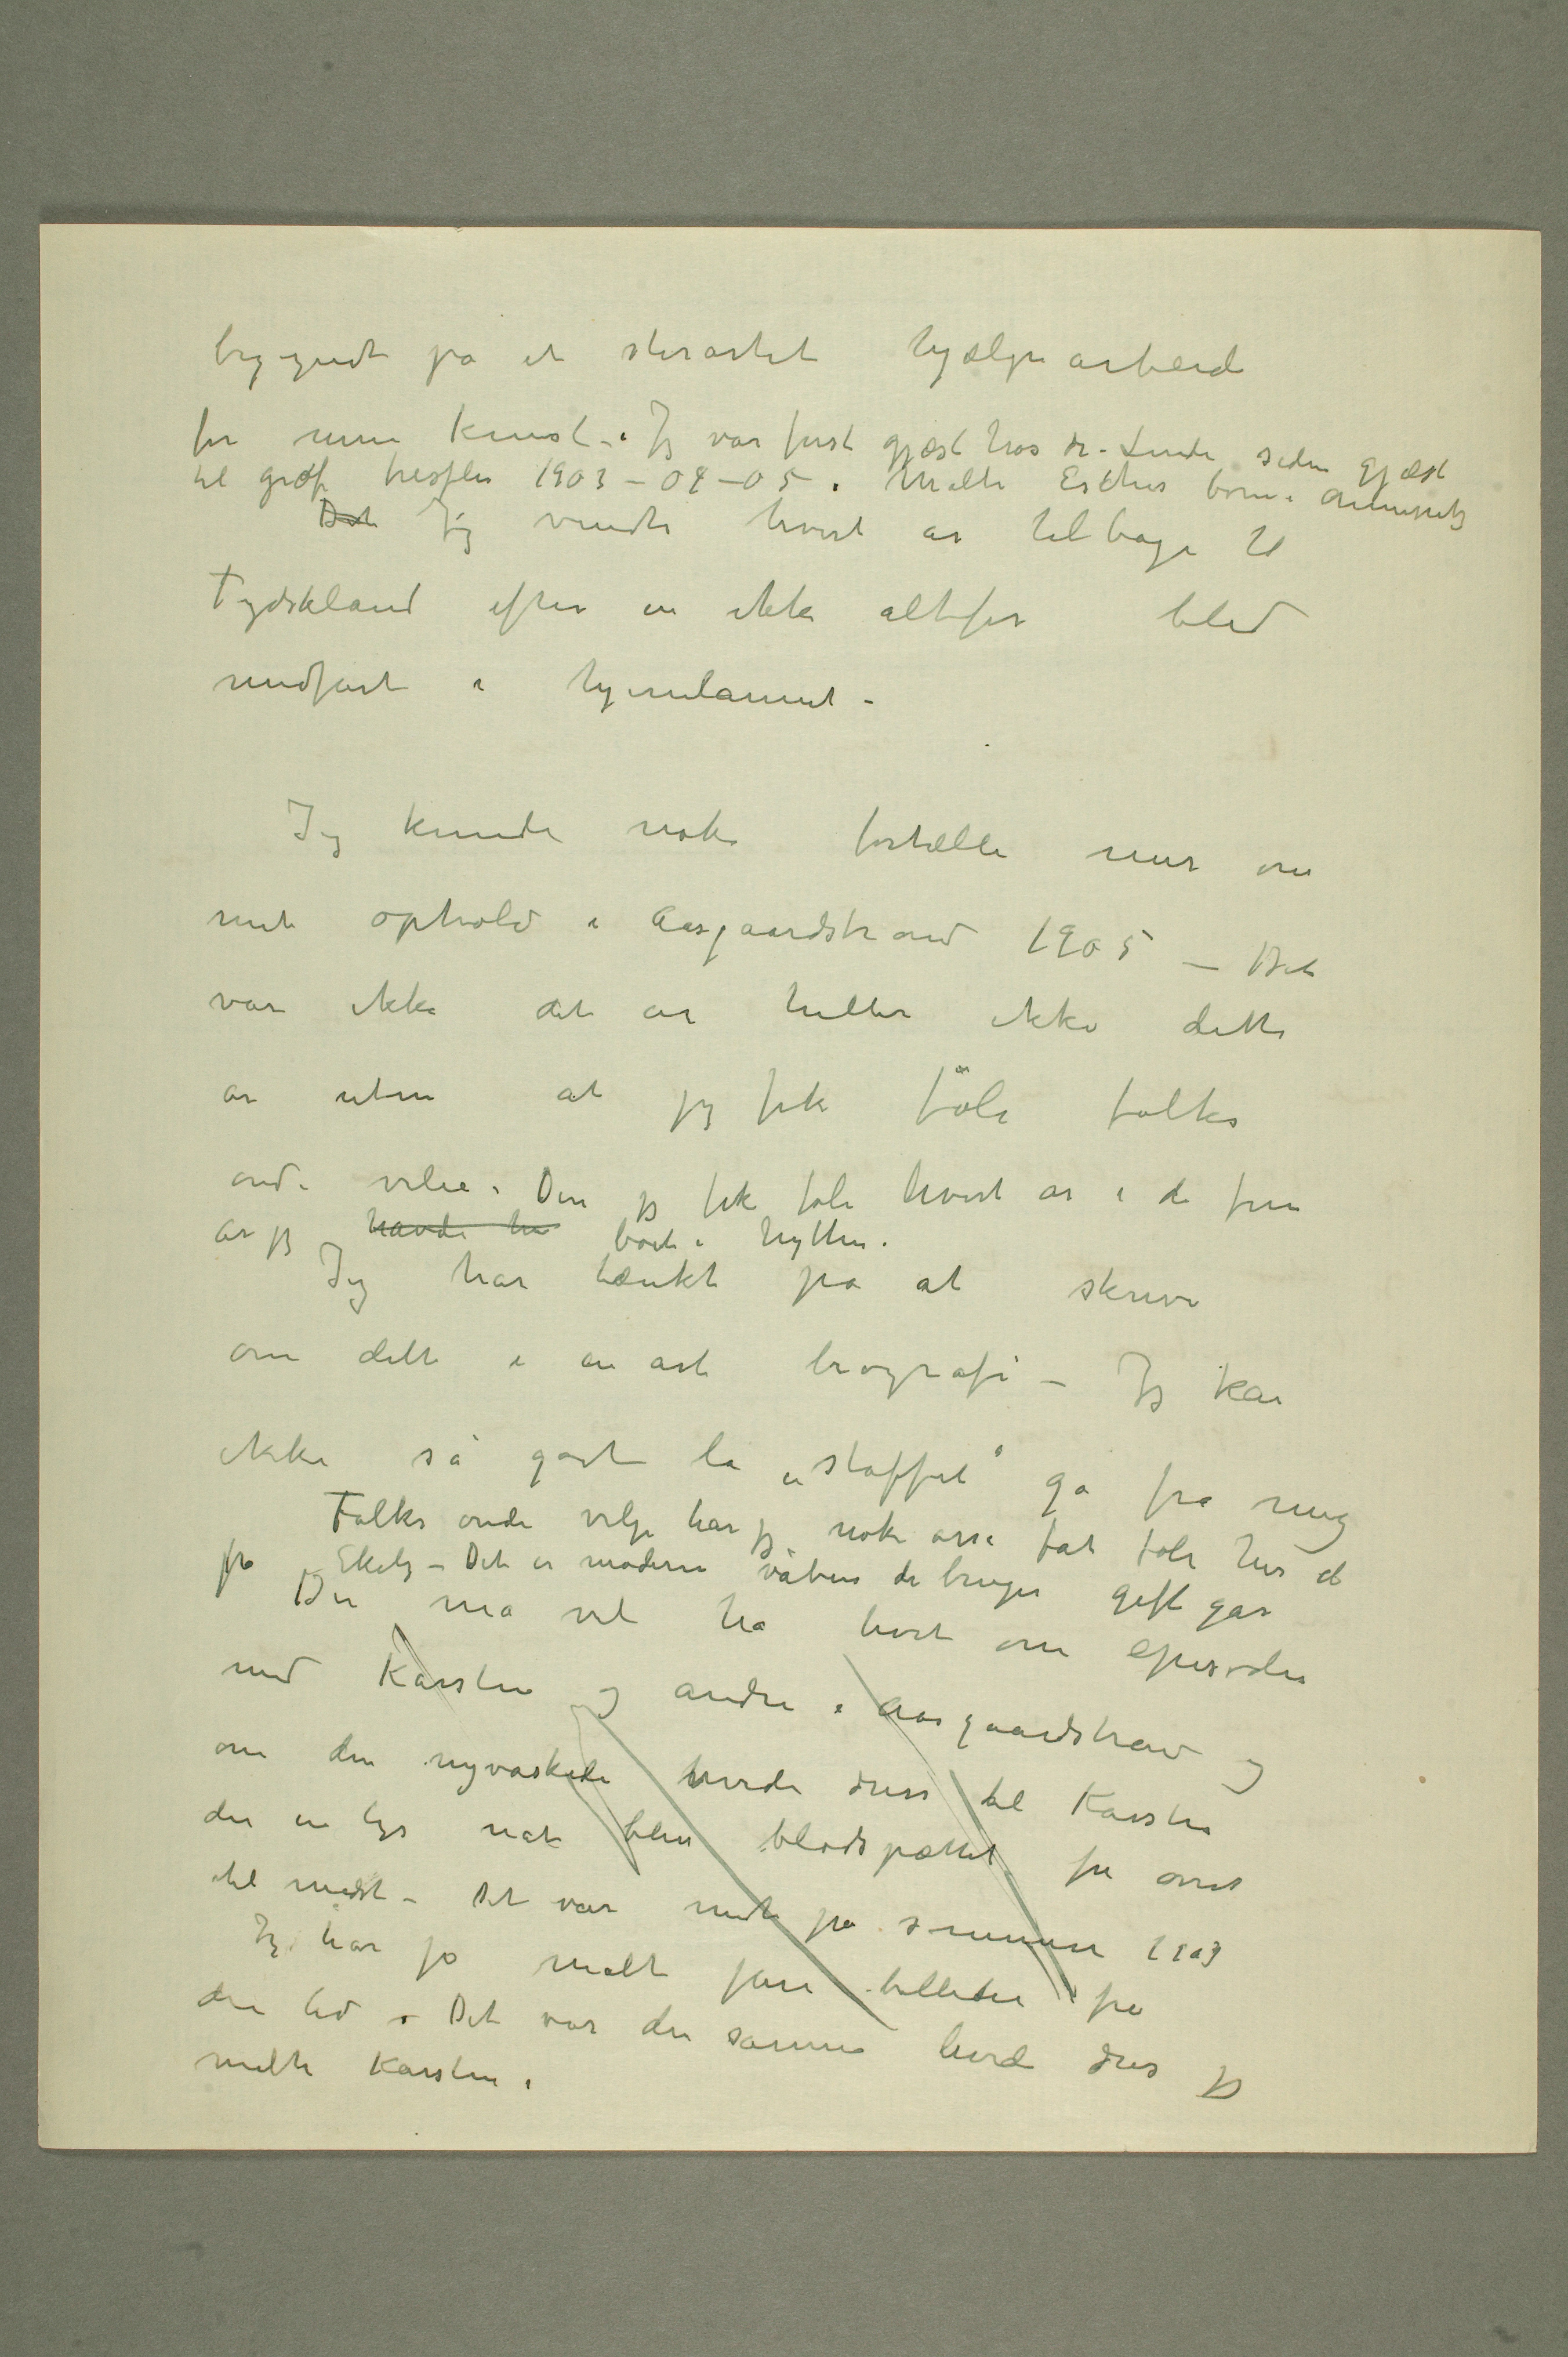 begyndt på et storartet hjælpearbeid
for min kunst. – Jeg var først gjæst hos dr. Linde siden gjæst
til graf Kessler 1903 – 04 – 05. Malte Esches børn i Chemnitz
Det Jeg vendte hvert år tilbage til
Tydskland efter en ikke altfor blid
medfart i hjemlannet –
Jeg kunde nok fortælle mer om
mit ophold i Aasgaardstrand 1905 – Det
var ikke det år heller ikke dette
år uten at jeg fik föle folks
onde vilie. Den jeg fik føle hvert år i de fem
år jeg havde boet i hytten.
Jeg har tænkt på at skrive
om dette i en art biografi – Jeg kan
ikke så godt la „stoffet“ gå fra mig
Folks onde vilje har jeg nok også fåt føle her
på Ekely – Det er moderne våben de bruger giftgas
Du må vel ha hørt om episoder
med Karsten og andre i Aasgaardstrand og
om den nyvaskede hvide dress til Karsten
der en lys nat blev blodspættet fra øverst
til nederst – Det var midt på sommeren 1903
Jeg har jo malt flere billeder fra
den tid. Det var den samme hvide dres jeg
malte Karsten i